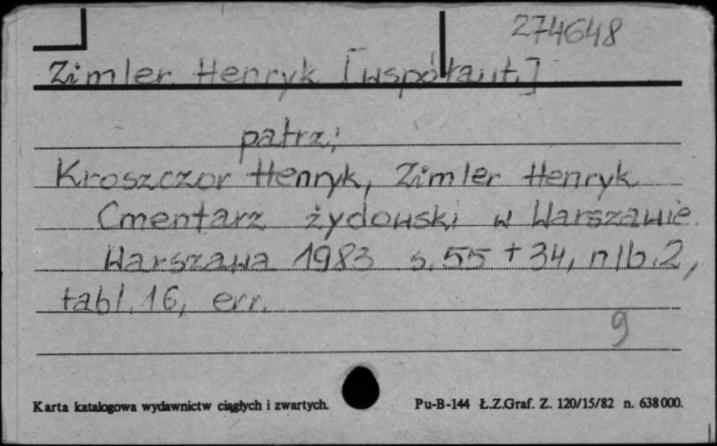 274648
Zimler Henryk [współaut.]
patrz:
Kroszczor Henryk, Zimler Henryk
Cmentarz żydowski w Warszawie.
Warszawa 1983 s. 55 + 34, nlb. 2,
tabl. 16, err.
9
Karta katalogowa wydawnictw ciągłych i zwartych.
Pu-B-144 Ł.Z.Graf. Z. 120/15/82 n. 638000.